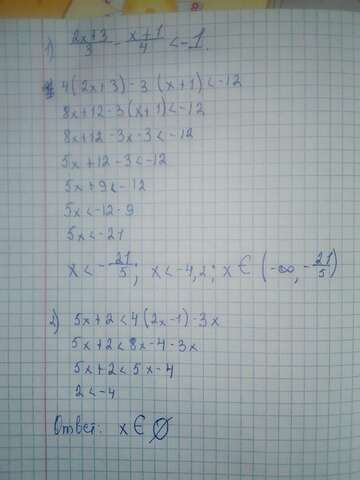 1) (2x+3)/3 - (x+1)/4 < -1.
4(2x+3)-3·(x+1)<-12
8x+12-3(x+1)<-12
8x+12-3x-3<-12
5x+12-3<-12
5x+9<-12
5x<-12-9
5x<-21
x<-21/5; x<-4,2; x∈(-∞,-21/5)
2) 5x+2<4(2x-1)-3x
5x+2<8x-4-3x
5x+2<5x-4
2<-4
Ответ: x∈∅